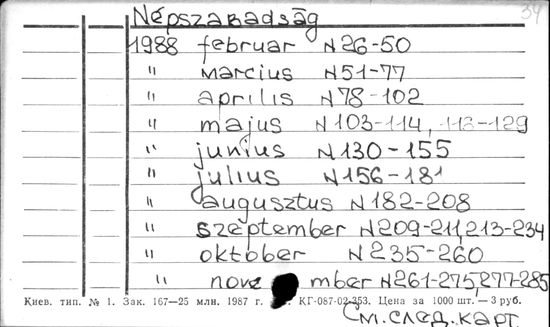 34
Népszabadság
1988 február N26-50
" március N51-77
" aprilis N78-102
" majus N103-114, 116-129
" junius N130-155
" julius N156-181
" augusztus N182-208
" szeptember N209-211, 213-234
" október N235-260
" nove mber N261-275, 277-285
Киев. тип. № 1. Зак. 167—25 млн. 1987 г. КГ-087-02-353. Цена за 1000 шт. — 3 руб.
См. след. карт